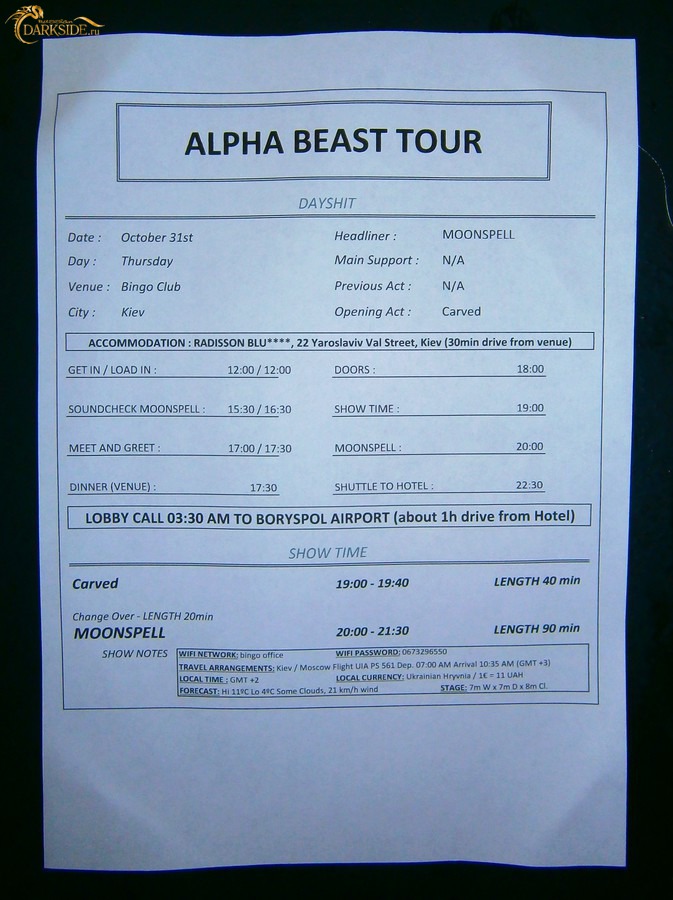 DARKSIDE.ru
ALPHA BEAST TOUR
DAYSHIT
Date : October 31st Headliner : MOONSPELL
Day : Thursday Main Support : N/A
Venue : Bingo Club Previous Act : N/A
City : Kiev Opening Act : Carved
ACCOMMODATION : RADISSON BLU****, 22 Yaroslaviv Val Street, Kiev (30min drive from venue)
GET IN / LOAD IN : 12:00 / 12:00 DOORS : 18:00
SOUNDCHECK MOONSPELL : 15:30 / 16:30 SHOW TIME : 19:00
MEET AND GREET : 17:00 / 17:30 MOONSPELL : 20:00
DINNER (VENUE) : 17:30 SHUTTLE TO HOTEL : 22:30
LOBBY CALL 03:30 AM TO BORYSPOL AIRPORT (about 1h drive from Hotel)
SHOW TIME
Carved 19:00 - 19:40 LENGTH 40 min
Change Over - LENGTH 20min
MOONSPELL 20:00 - 21:30 LENGTH 90 min
SHOW NOTES WIFI NETWORK: bingo office WIFI PASSWORD: 0673296550
TRAVEL ARRANGEMENTS: Kiev / Moscow Flight UIA PS 561 Dep. 07:00 AM Arrival 10:35 AM (GMT +3)
LOCAL TIME : GMT +2 LOCAL CURRENCY: Ukrainian Hryvnia / 1€ = 11 UAH
FORECAST: Hi 11ºC Lo 4ºC Some Clouds, 21 km/h wind STAGE: 7m W x 7m D x 8m Cl.